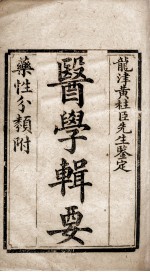 龍津黃桂臣先生鑒定
醫學輯要
藥性分類附